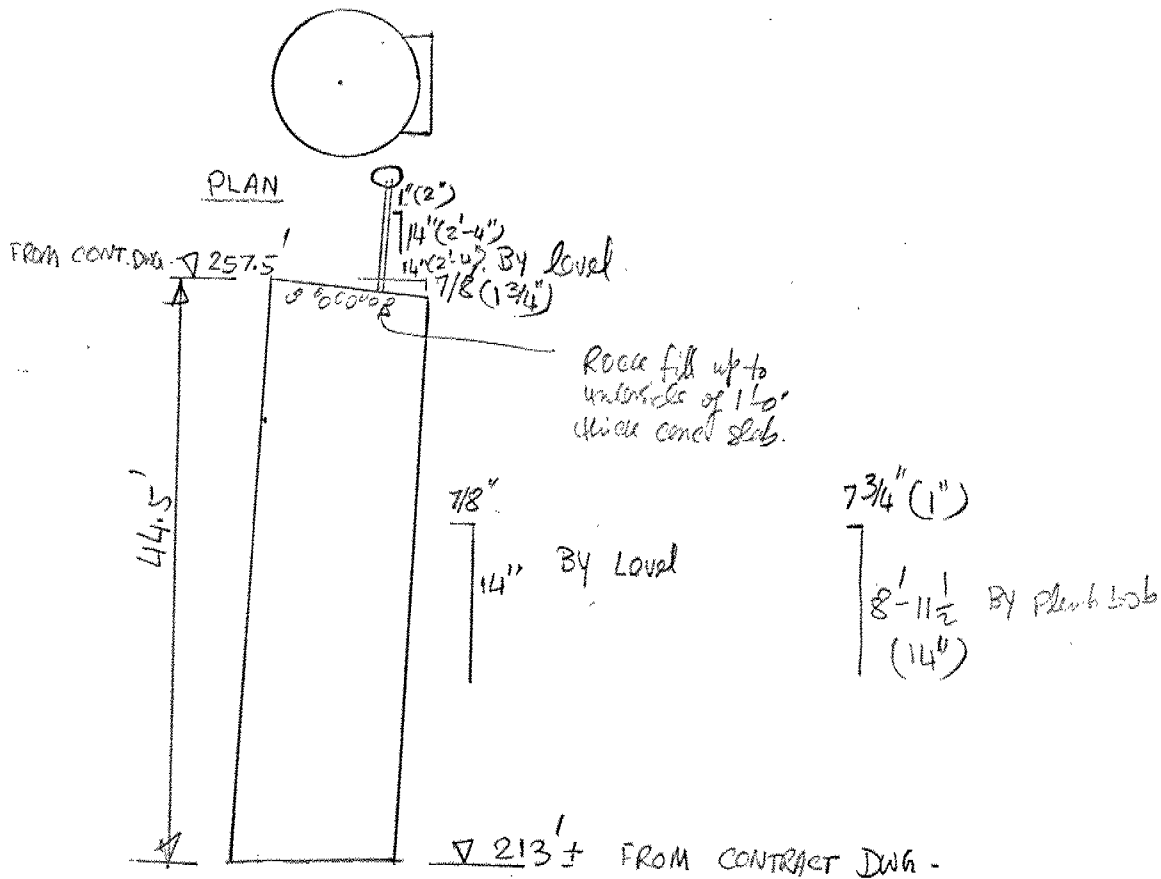 PLAN
1"(2")
14"(2'-4")
14"(2'-4") By level
FROM CONT. DWG. 257.5'
7/8 (1 3/4")
Rock fill up to
underside of 1'-0"
thick conc slab.
44.5'
7/8"
14"
BY Level
7 3/4" (1")
8'-11 1/2
(14")
BY Plumb bob
213'± FROM CONTRACT DWG-